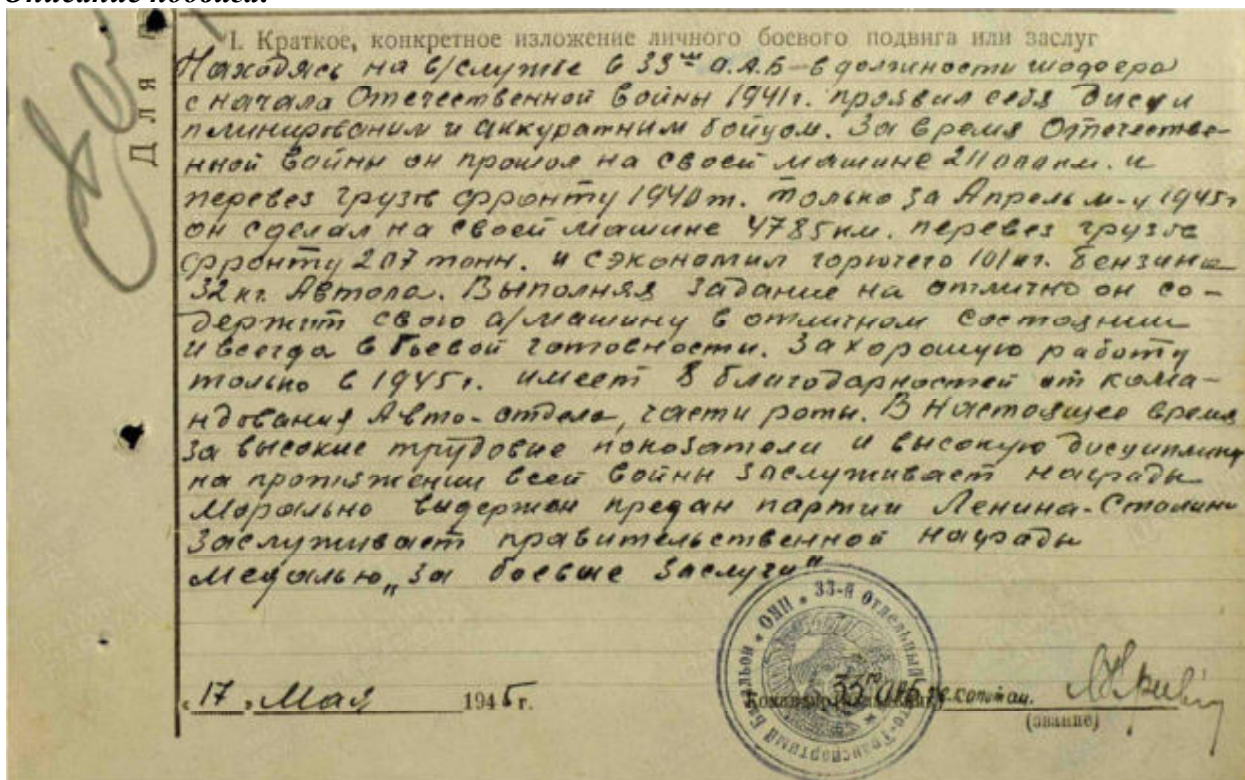 Описание подвига:
Для н
I. Краткое, конкретное изложение личного боевого подвига или заслуг
Находясь на в/службе в 33ем О.А.Б - в должности шофера
с начала Отечественной войны 1941г. проявил себя дисци
плинированим и аккуратним бойцом. За время Отечестве-
нной войны он прошол на своей машине 211000км. и
перевез грузов фронту 1940т. только за Апрель м-ц 1945г
он сделал на своей машине 4785км. перевез грузов
фронту 207 тонн. и сэкономил горючего 101кг. бензина
32кг. Автола. Выполняя задание на отлично он со-
держит свою а/машину в отличном состоянии
и всегда в боевой готовности. За хорошую работу
только в 1945г. имеет 8 благодарностей от кома-
ндования Авто-отдела, части роты. В настоящее время
за высокие трудовие показатели и высокую дисциплину
на протяжении всей войны заслуживает награды
Морально выдержан предан партии Ленина-Сталина
Заслуживает правительственной награды
медалью „За боевые заслуги"
33-й Отдельный Авто-Транспортный Батальон
„17" Мая 1945г.
33го ОАБ гв.капитан.
(звание)